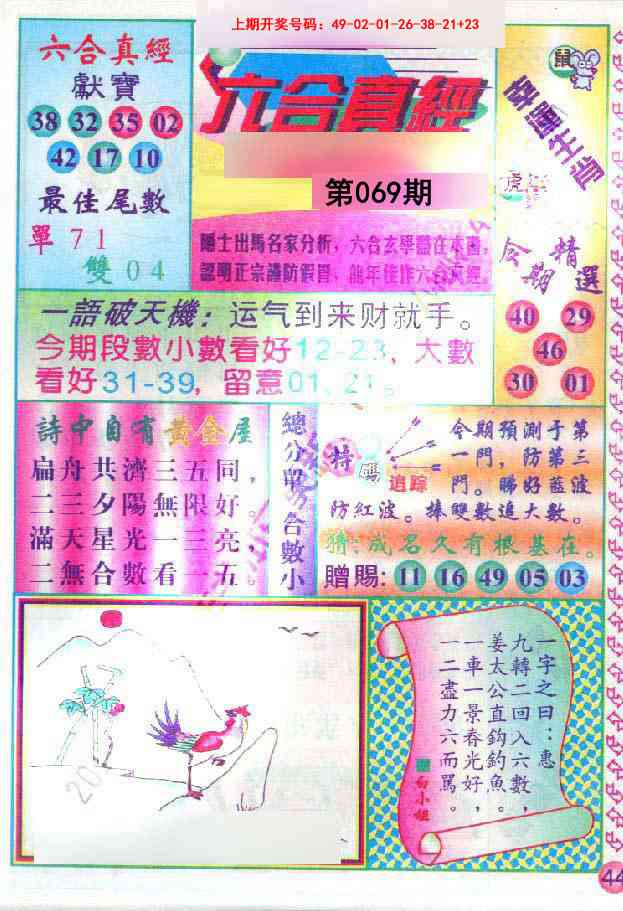 上期开奖号码：49-02-01-26-38-21+23
六合真經
獻寶
38 32 35 02
42 17 10
最佳尾數
單 71
雙 04
六合真經
第069期
隱士出馬名家分析，六合玄學盡在本圖，
認明正宗謹防假冒，龍年佳作六合真經。
鼠
幸運生肖
虎
今期精選
40 29
46
30 01
一語破天機：运气到来财就手。
今期段數小數看好12-23，大數
看好31-39，留意01、21。
詩中自有黃金屋
扁舟共濟三五同，
二三夕陽無限好。
滿天星光一三亮，
二無合數看一五。
特碼
追踪
今期預測于第
一門，防第三
門。睇好藍波
防紅波。捧雙數追大數。
猜：成名久有根基在。
贈賜：11 16 49 05 03
一字之曰：惠
九轉二回入六數，
姜太公直鈎釣魚。
一車一景春光好，
一二盡力六而罵。
白小姐
20
44